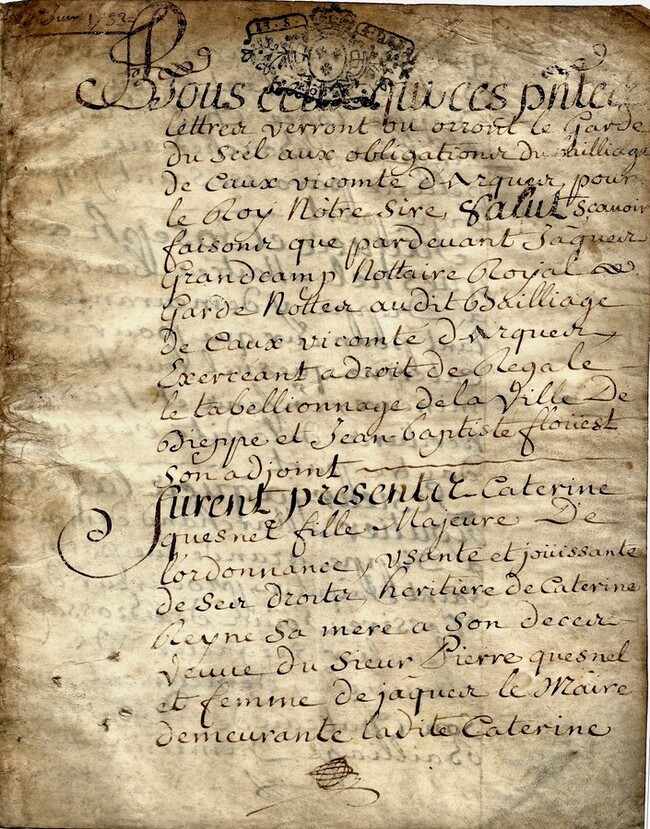 Juin 1732
A Tous ceux qui ces pntes
lettres verront ou orront le Garde
du Scél aux obligations du Bailliage
de Caux vicomté d'Arques, pour
le Roy Notre Sire, Salut Scavoir
faisons que pardevant Jâques
Grandcamp Nottaire Royal
Garde Nottes audit Bailliage
de Caux vicomté d'Arques
Exerceant a droit de Regale
le tabellionnage de la Ville De
Dieppe et Jean baptiste flouest
son adjoint
furent presentes Caterine
quesnel fille Majeure De
l'ordonnance, usante et joüissante
de Ses droits, heritière de Caterine
Reyne Sa mere a Son deces
veuve du Sieur Pierre quesnel
et femme de jaques le Maire
demeurante ladite Caterine